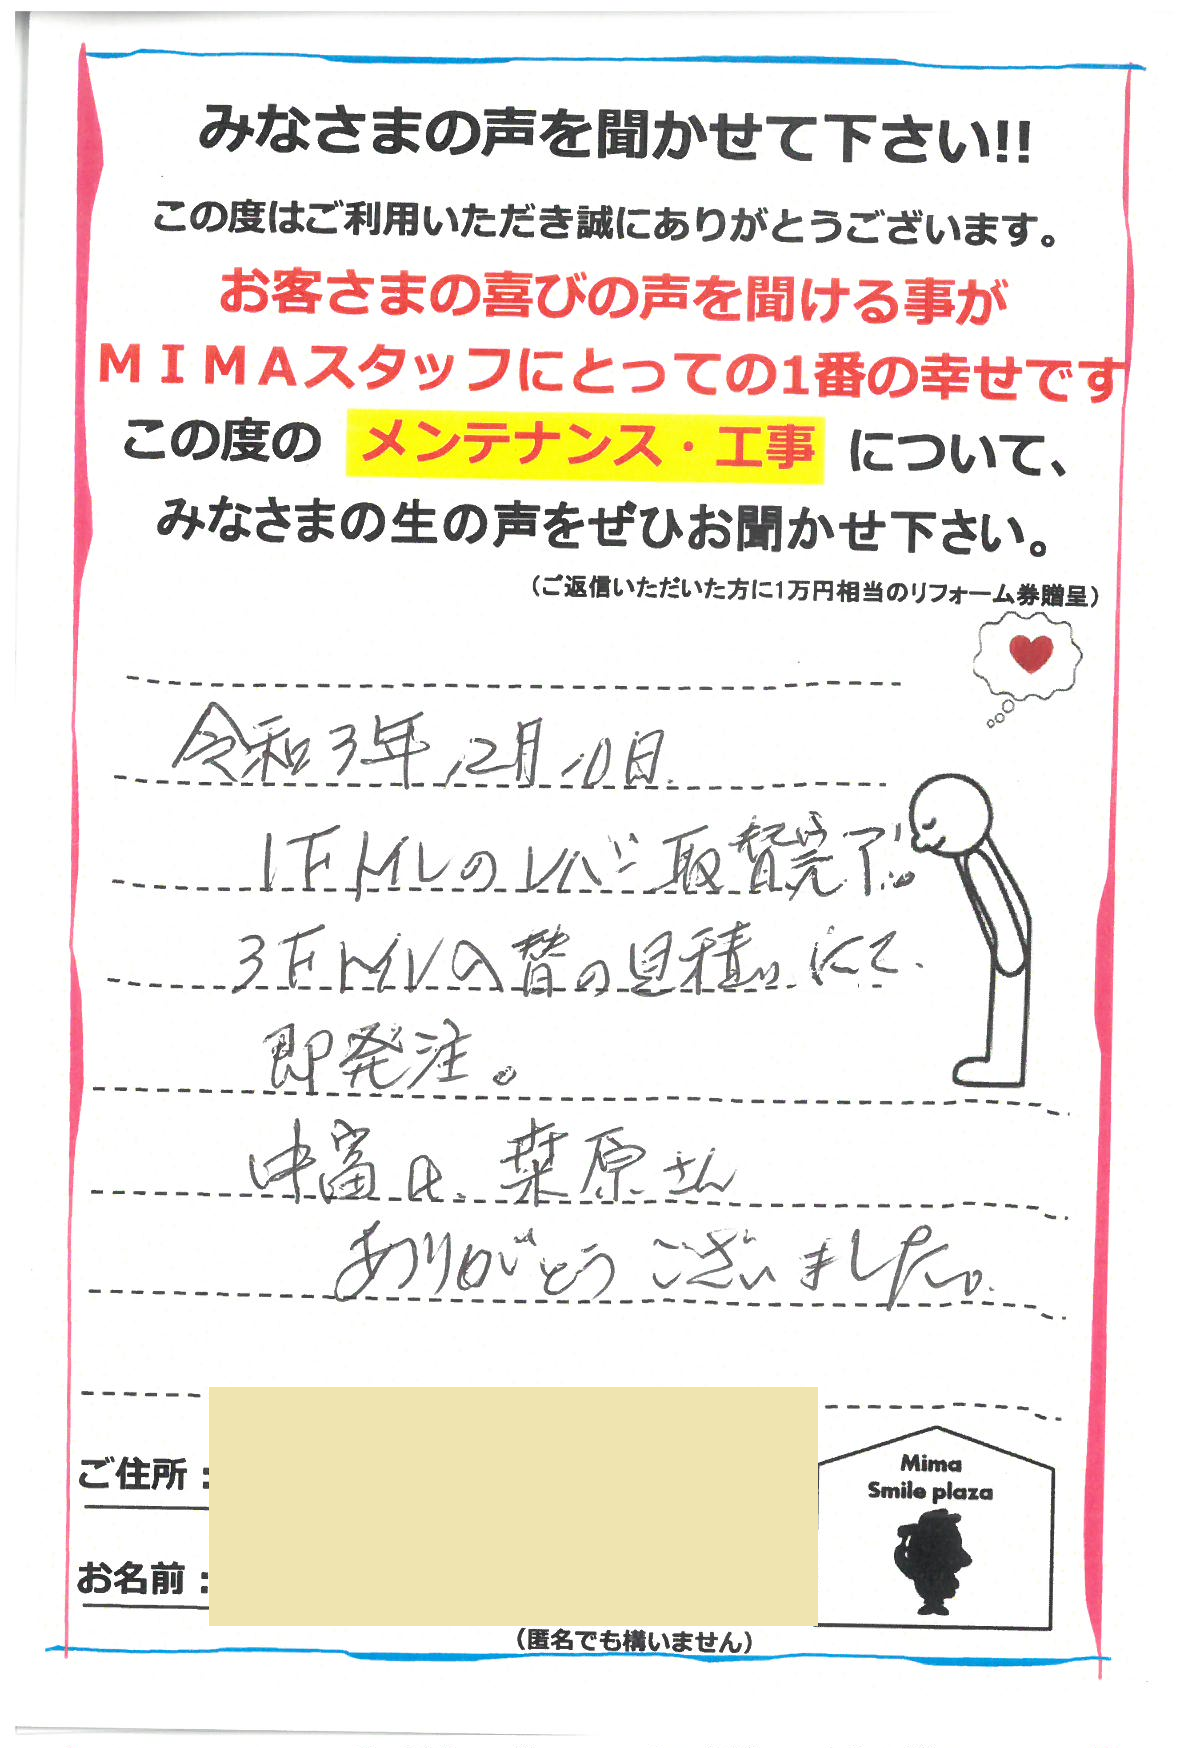 みなさまの声を聞かせて下さい!!
この度はご利用いただき誠にありがとうございます。
お客さまの喜びの声を聞ける事が
ＭＩＭＡスタッフにとっての1番の幸せです
この度の メンテナンス・工事 について、
みなさまの生の声をぜひお聞かせ下さい。
（ご返信いただいた方に1万円相当のリフォーム券贈呈）
令和3年12月10日
1Fトイレのレバー取替完了。
3Fトイレの替の見積りにて、
即発注。
中富氏、桒原さん
ありがとうございました。
ご住所：
お名前：
Mima
Smile plaza
（匿名でも構いません）